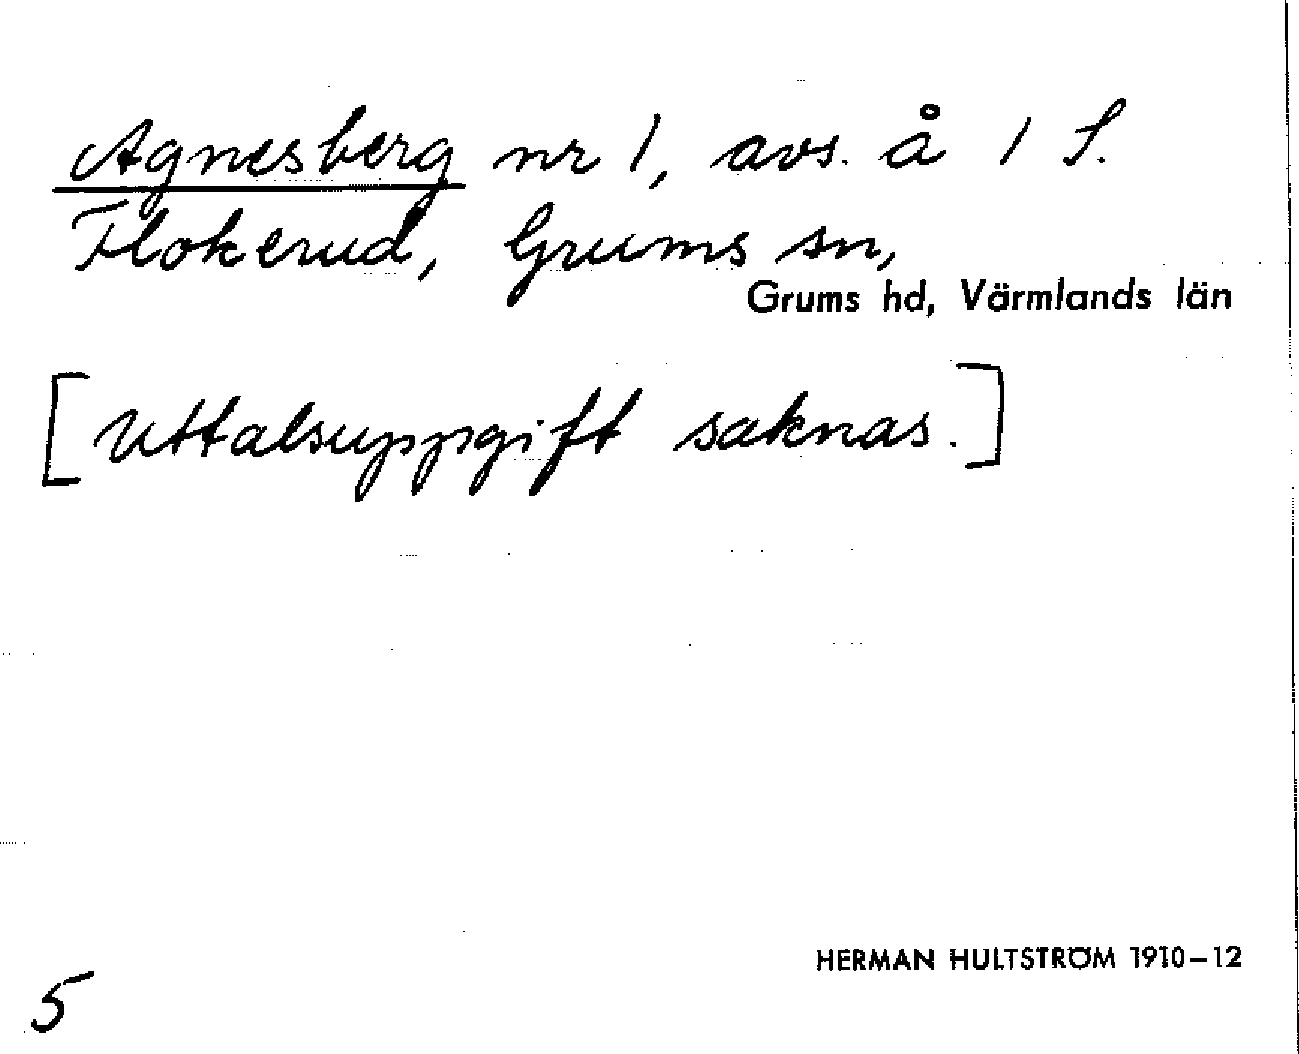 Agnesberg nr 1, avs. å 1 S.
Flokerud, Grums sn,
Grums hd, Värmlands län
[Uttalsuppgift saknas.]
HERMAN HULTSTRÖM 1910-12
5